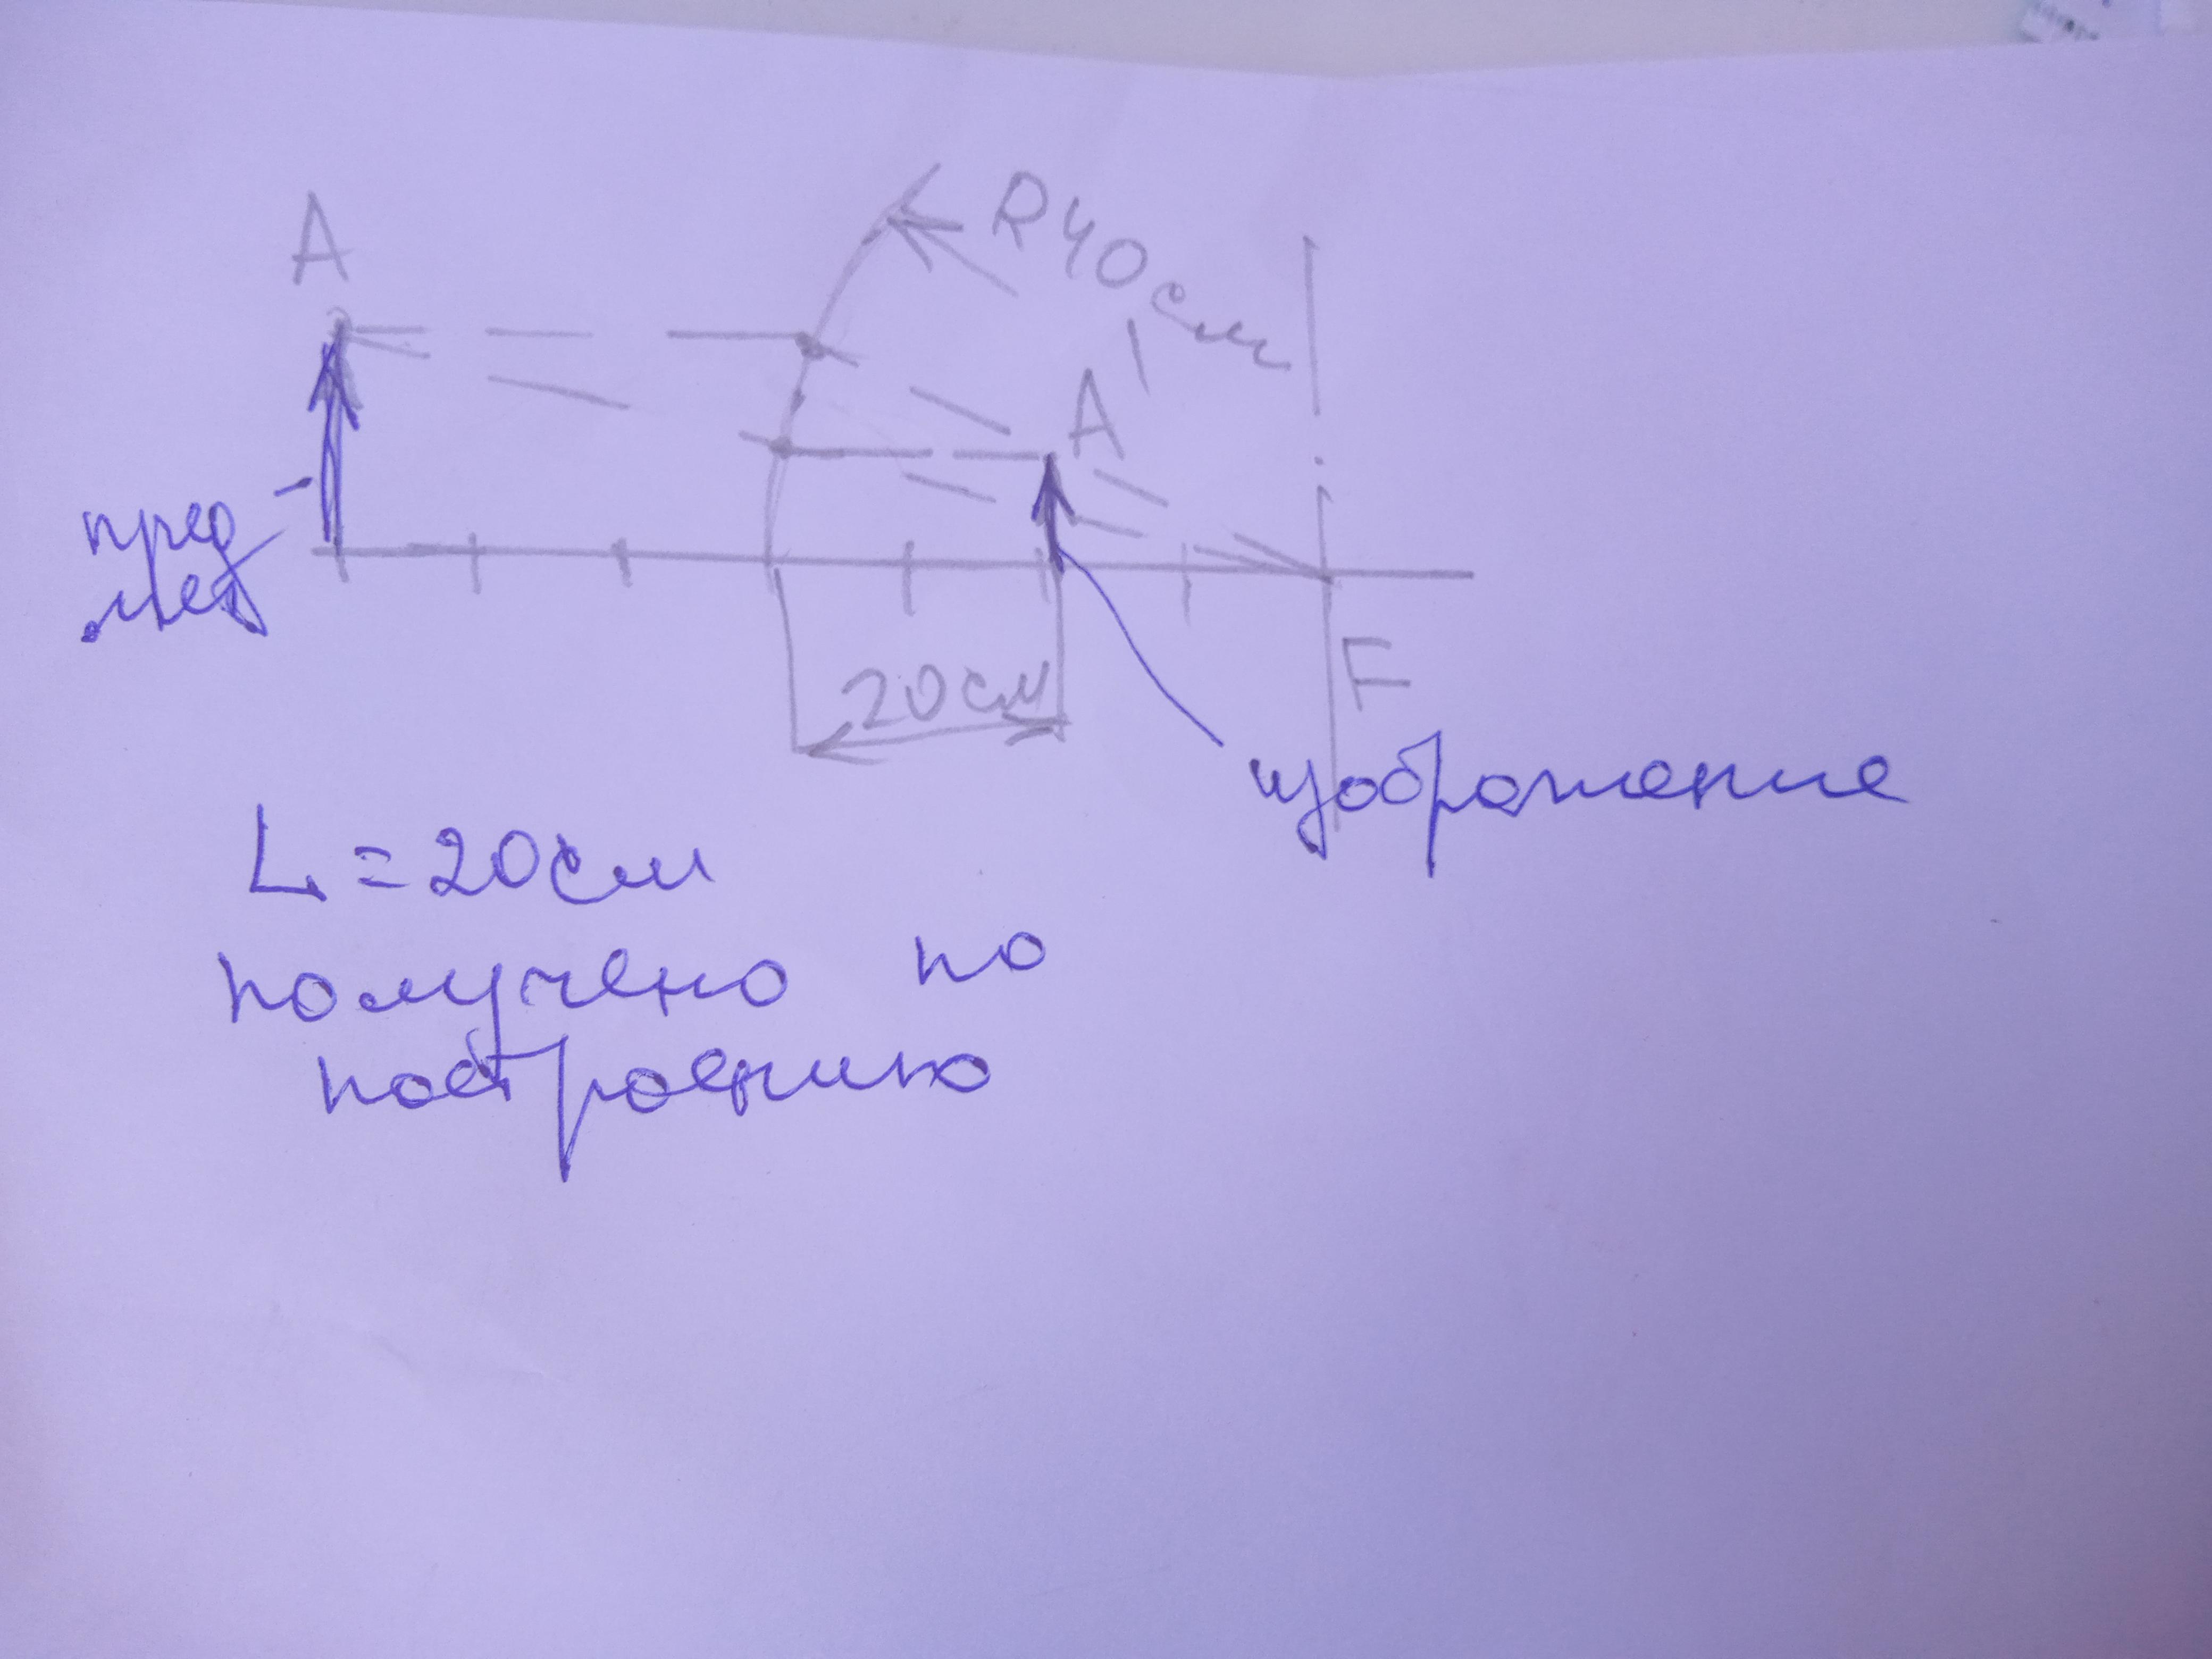 A
R40см
A
пред
мет
20см
F
изображение
L = 20см
получено по
построению